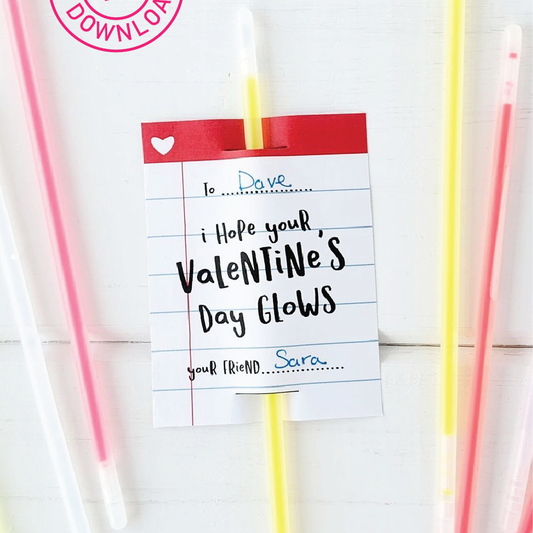 DOWNLOA
To ..Dave..
i HoPe youR
VaLeNTiNe's
Day GLoWS
youR FRieND...Sara...